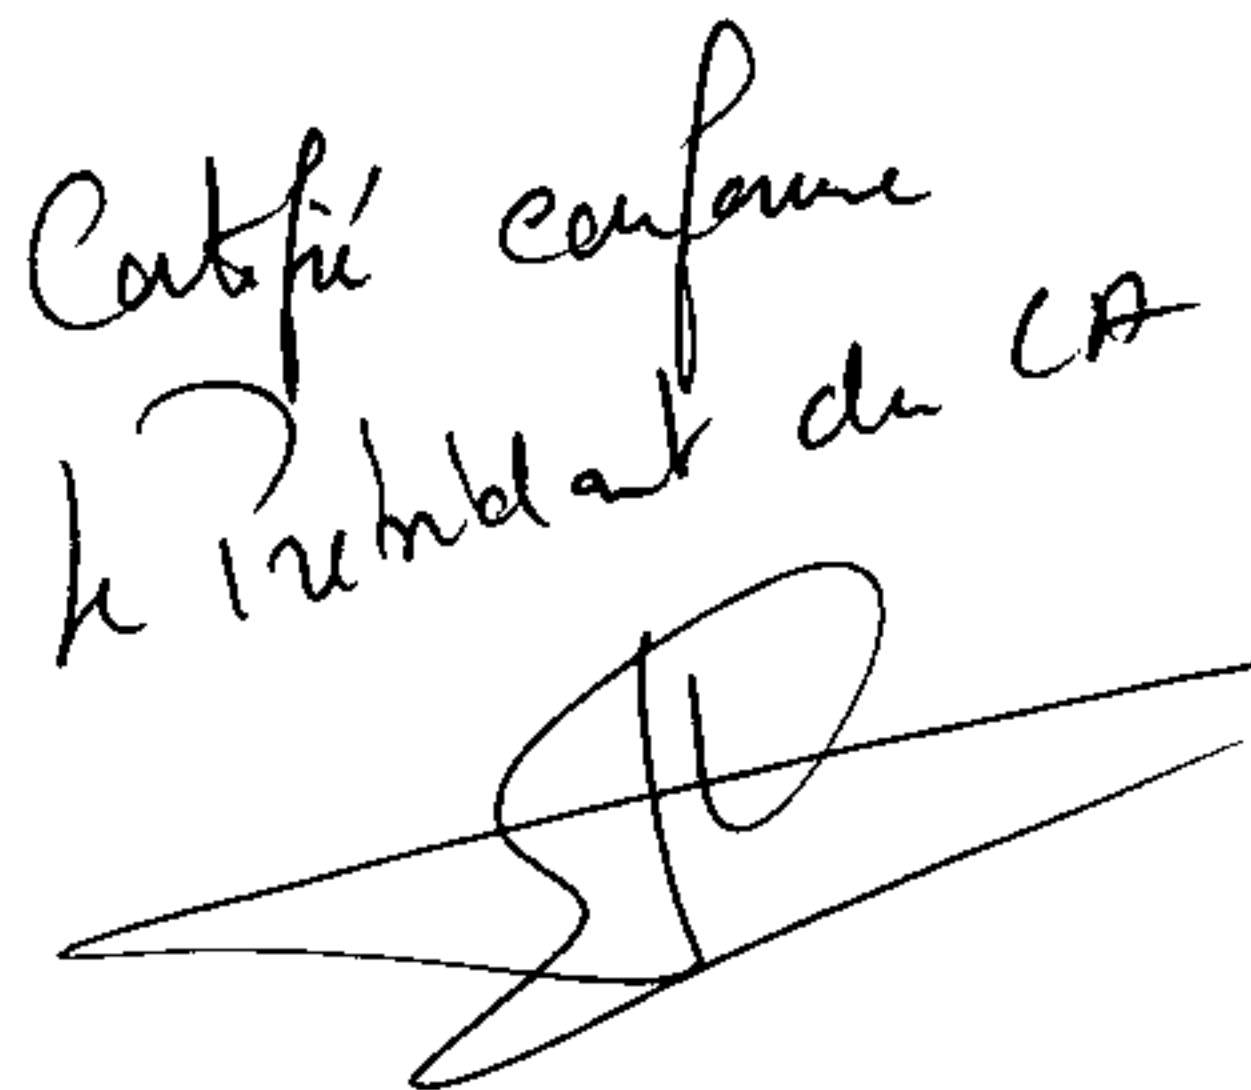 Certifié conforme
le Président du CA